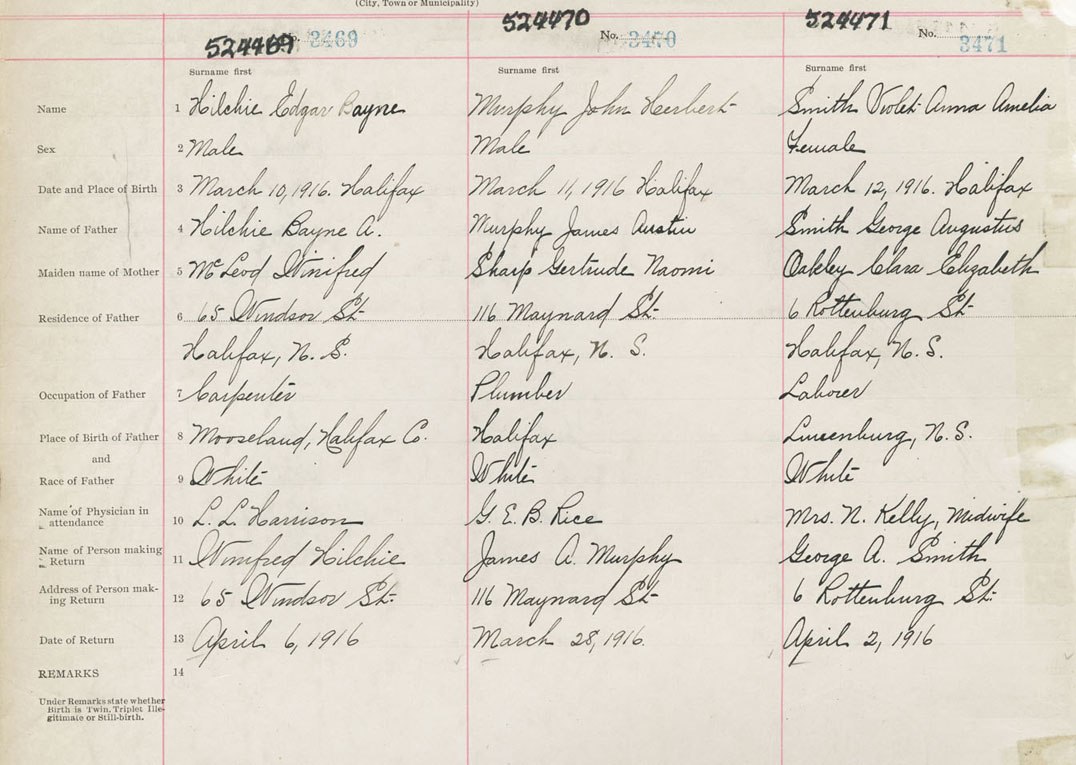 (City, Town or Municipality)
524469 No. 3469 524470 No. 3470 524471 No. 3471
Surname first Surname first Surname first
Name 1 Hilchie Edgar Bayne Murphy John Herbert Smith Violet Anna Amelia
Sex 2 Male Male Female
Date and Place of Birth 3 March 10, 1916. Halifax March 11, 1916 Halifax March 12, 1916. Halifax
Name of Father 4 Hilchie Bayne A. Murphy James Austin Smith George Augustus
Maiden name of Mother 5 McLeod Winifred Sharp Gertrude Naomi Oakley Clara Elizabeth
Residence of Father 6 65 Windsor St. 116 Maynard St. 6 Rottenburg St.
Halifax, N. S. Halifax, N. S. Halifax, N. S.
Occupation of Father 7 Carpenter Plumber Laborer
Place of Birth of Father 8 Mooseland, Halifax Co. Halifax Lunenburg, N. S.
and
Race of Father 9 White White White
Name of Physician in
attendance 10 L. L. Harrison G. E. B. Rice Mrs. N. Kelly, Midwife
Name of Person making
Return 11 Winifred Hilchie James A. Murphy George A. Smith
Address of Person mak-
ing Return 12 65 Windsor St. 116 Maynard St. 6 Rottenburg St.
Date of Return 13 April 6, 1916 March 28, 1916. April 2, 1916
REMARKS 14
Under Remarks state whether
Birth is Twin, Triplet Ille-
gitimate or Still-birth.